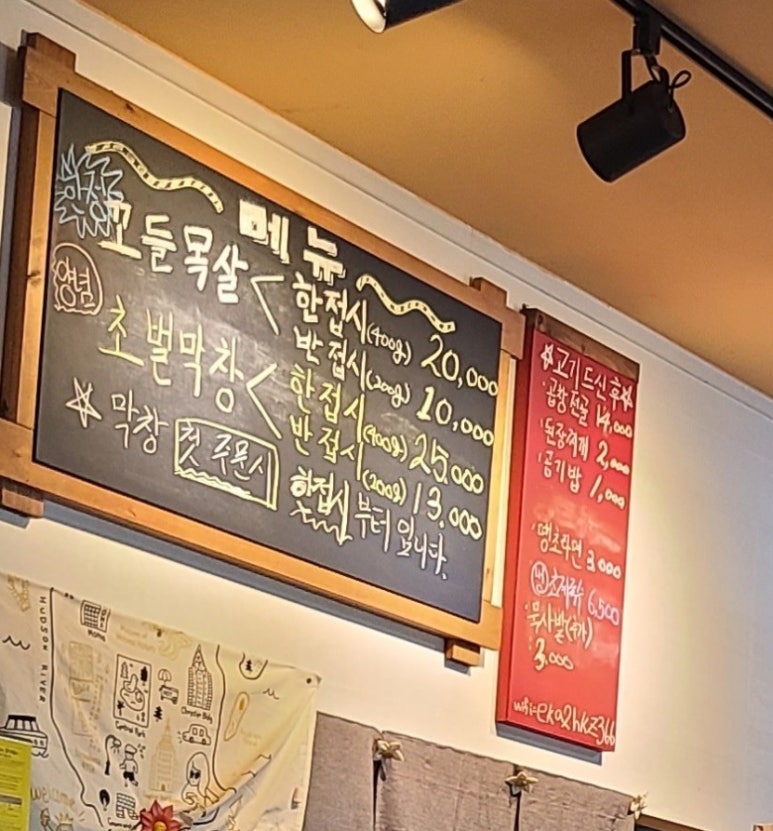 메뉴
한정
꼬들목살 < 한접시(400g) 20,000
반접시(200g) 10,000
양념
초벌막창 < 한접시(400g) 25,000
반접시(200g) 13,000
☆ 막창 첫 주문시 한접시 부터 입니다.
☆고기드신후☆
·곱창전골 14,000
·된장찌개 2,000
·공기밥 1,000
·땡초라면 3,000
6,500
·묵사발(추가)
3,000
HUDSON RIVER
Central Park
Chrysler Bldg
welcome